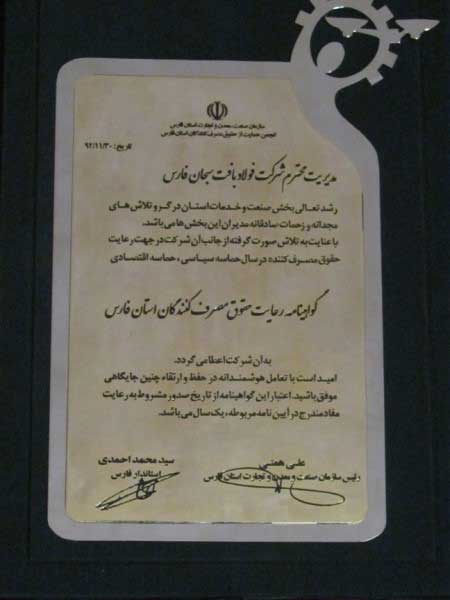 سازمان صنعت، معدن و تجارت استان فارس
انجمن حمایت از حقوق مصرف کنندگان استان فارس
تاریخ: ۹۲/۱۱/۳۰
مدیریت محترم شرکت فولاد بافت سبحان فارس
رشد تعالی بخش صنعت و خدمات استان در گرو تلاش های
مجدانه و زحمات صادقانه مدیران این بخش ها می باشد.
با عنایت به تلاش صورت گرفته از جانب آن شرکت در جهت رعایت
حقوق مصرف کننده در سال حماسه سیاسی، حماسه اقتصادی
گواهینامه رعایت حقوق مصرف کنندگان استان فارس
به آن شرکت اعطا می گردد.
امید است با تعامل هوشمندانه در حفظ و ارتقاء چنین جایگاهی
موفق باشید. اعتبار این گواهینامه از تاریخ صدور مشروط به رعایت
مفاد مندرج در آیین نامه مربوطه، یک سال می باشد.
علی همتی
رئیس سازمان صنعت و معدن و تجارت استان فارس
سید محمد احمدی
استاندار فارس